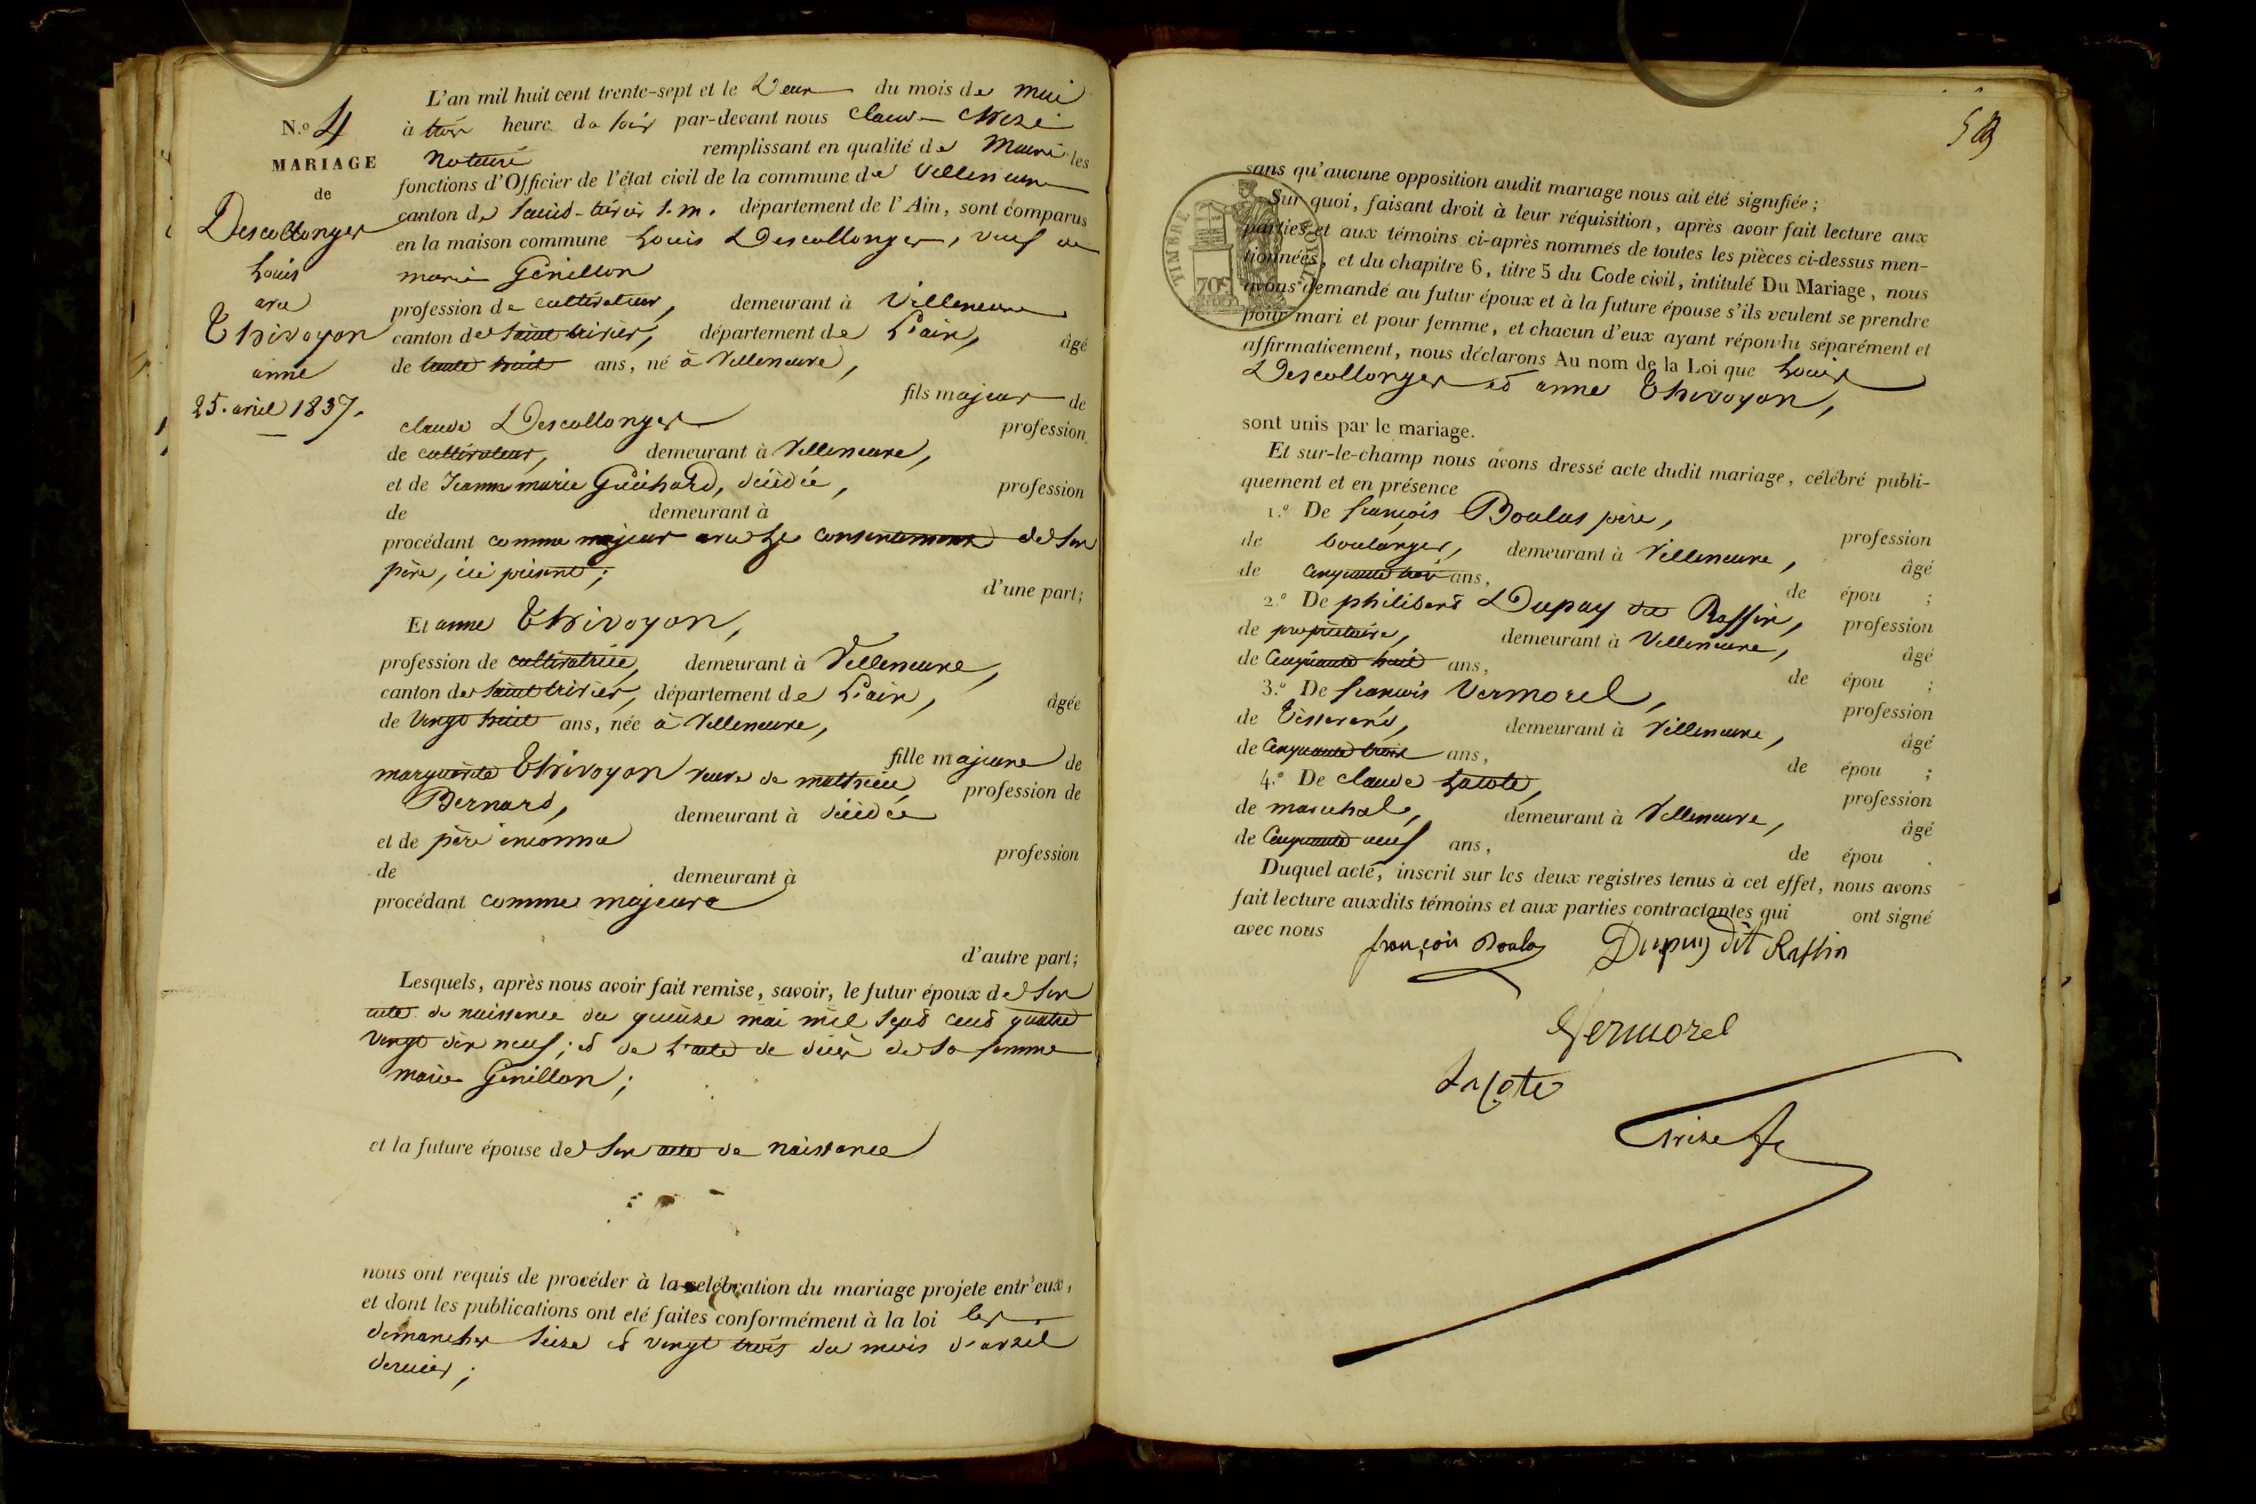 N.º 4
MARIAGE
de
Descollonges
Louis
avec
Thivoyon
anne
25. avril 1837.
L'an mil huit cent trente-sept et le Deux du mois de mai
à trois heure du soir par-devant nous Claude
Notaire remplissant en qualité de Maire les
fonctions d'Officier de l'état civil de la commune de Villeneuve
canton de Saint-trivier s. m. département de l'Ain, sont comparus
en la maison commune Louis Descollonges, veuf de
marie Génillon
profession de cultivateur, demeurant à Villeneuve
canton de Saint trivier, département de L'ain, âgé
de trente huit ans, né à Villeneuve,
fils majeur de
claude Descollonges profession
de cultivateur, demeurant à Villeneuve,
et de Jeanne marie Guichard, décédée, profession
de demeurant à
procédant comme majeur avec le consentement de son
père, ici présent;
d'une part;
Et anne Thivoyon,
profession de cultivatrice, demeurant à Villeneuve,
canton de Saint trivier, département de L'ain, âgée
de vingt huit ans, née à Villeneuve,
fille majeure de
marguerite Thivoyon veuve de mathieu profession de
Bernard, demeurant à décédée
et de père inconnu profession
de demeurant à
procédant comme majeure
d'autre part;
Lesquels, après nous avoir fait remise, savoir, le futur époux de son
acte de naissance du quinze mai mil sept cent quatre
vingt dix neuf; et de L'acte de décès de sa femme
marie Génillon;
et la future épouse de son acte de naissance
nous ont requis de procéder à la célébration du mariage projeté entr'eux,
et dont les publications ont été faites conformément à la loi les
dimanches seize et vingt trois du mois d'avril
dernier;
sans qu'aucune opposition audit mariage nous ait été signifiée;
Sur quoi, faisant droit à leur réquisition, après avoir fait lecture aux
parties et aux témoins ci-après nommés de toutes les pièces ci-dessus men-
tionnées, et du chapitre 6, titre 5 du Code civil, intitulé Du Mariage, nous
avons demandé au futur époux et à la future épouse s'ils veulent se prendre
pour mari et pour femme, et chacun d'eux ayant répondu séparément et
affirmativement, nous déclarons Au nom de la Loi que Louis
Descollonges et anne Thivoyon,
sont unis par le mariage.
Et sur-le-champ nous avons dressé acte dudit mariage, célébré publi-
quement et en présence
1.º De françois Boulas père, profession
de boulanger, demeurant à Villeneuve, âgé
de cinquante trois ans, de épou ;
2.º De philibert Dupuy dit Raffin, profession
de propriétaire, demeurant à Villeneuve, âgé
de Cinquante huit ans, de épou ;
3.º De françois Vermorel, profession
de Tisserand, demeurant à Villeneuve, âgé
de Cinquante trois ans, de épou ;
4.º De claude Lacote, profession
de marechal, demeurant à Villeneuve, âgé
de Cinquante neuf ans, de épou .
Duquel acte, inscrit sur les deux registres tenus à cet effet, nous avons
fait lecture auxdits témoins et aux parties contractantes qui ont signé
avec nous
françois Boulas Dupuy dit Raffin
Vermorel
Lacote
TIMBRE ROYAL
70c